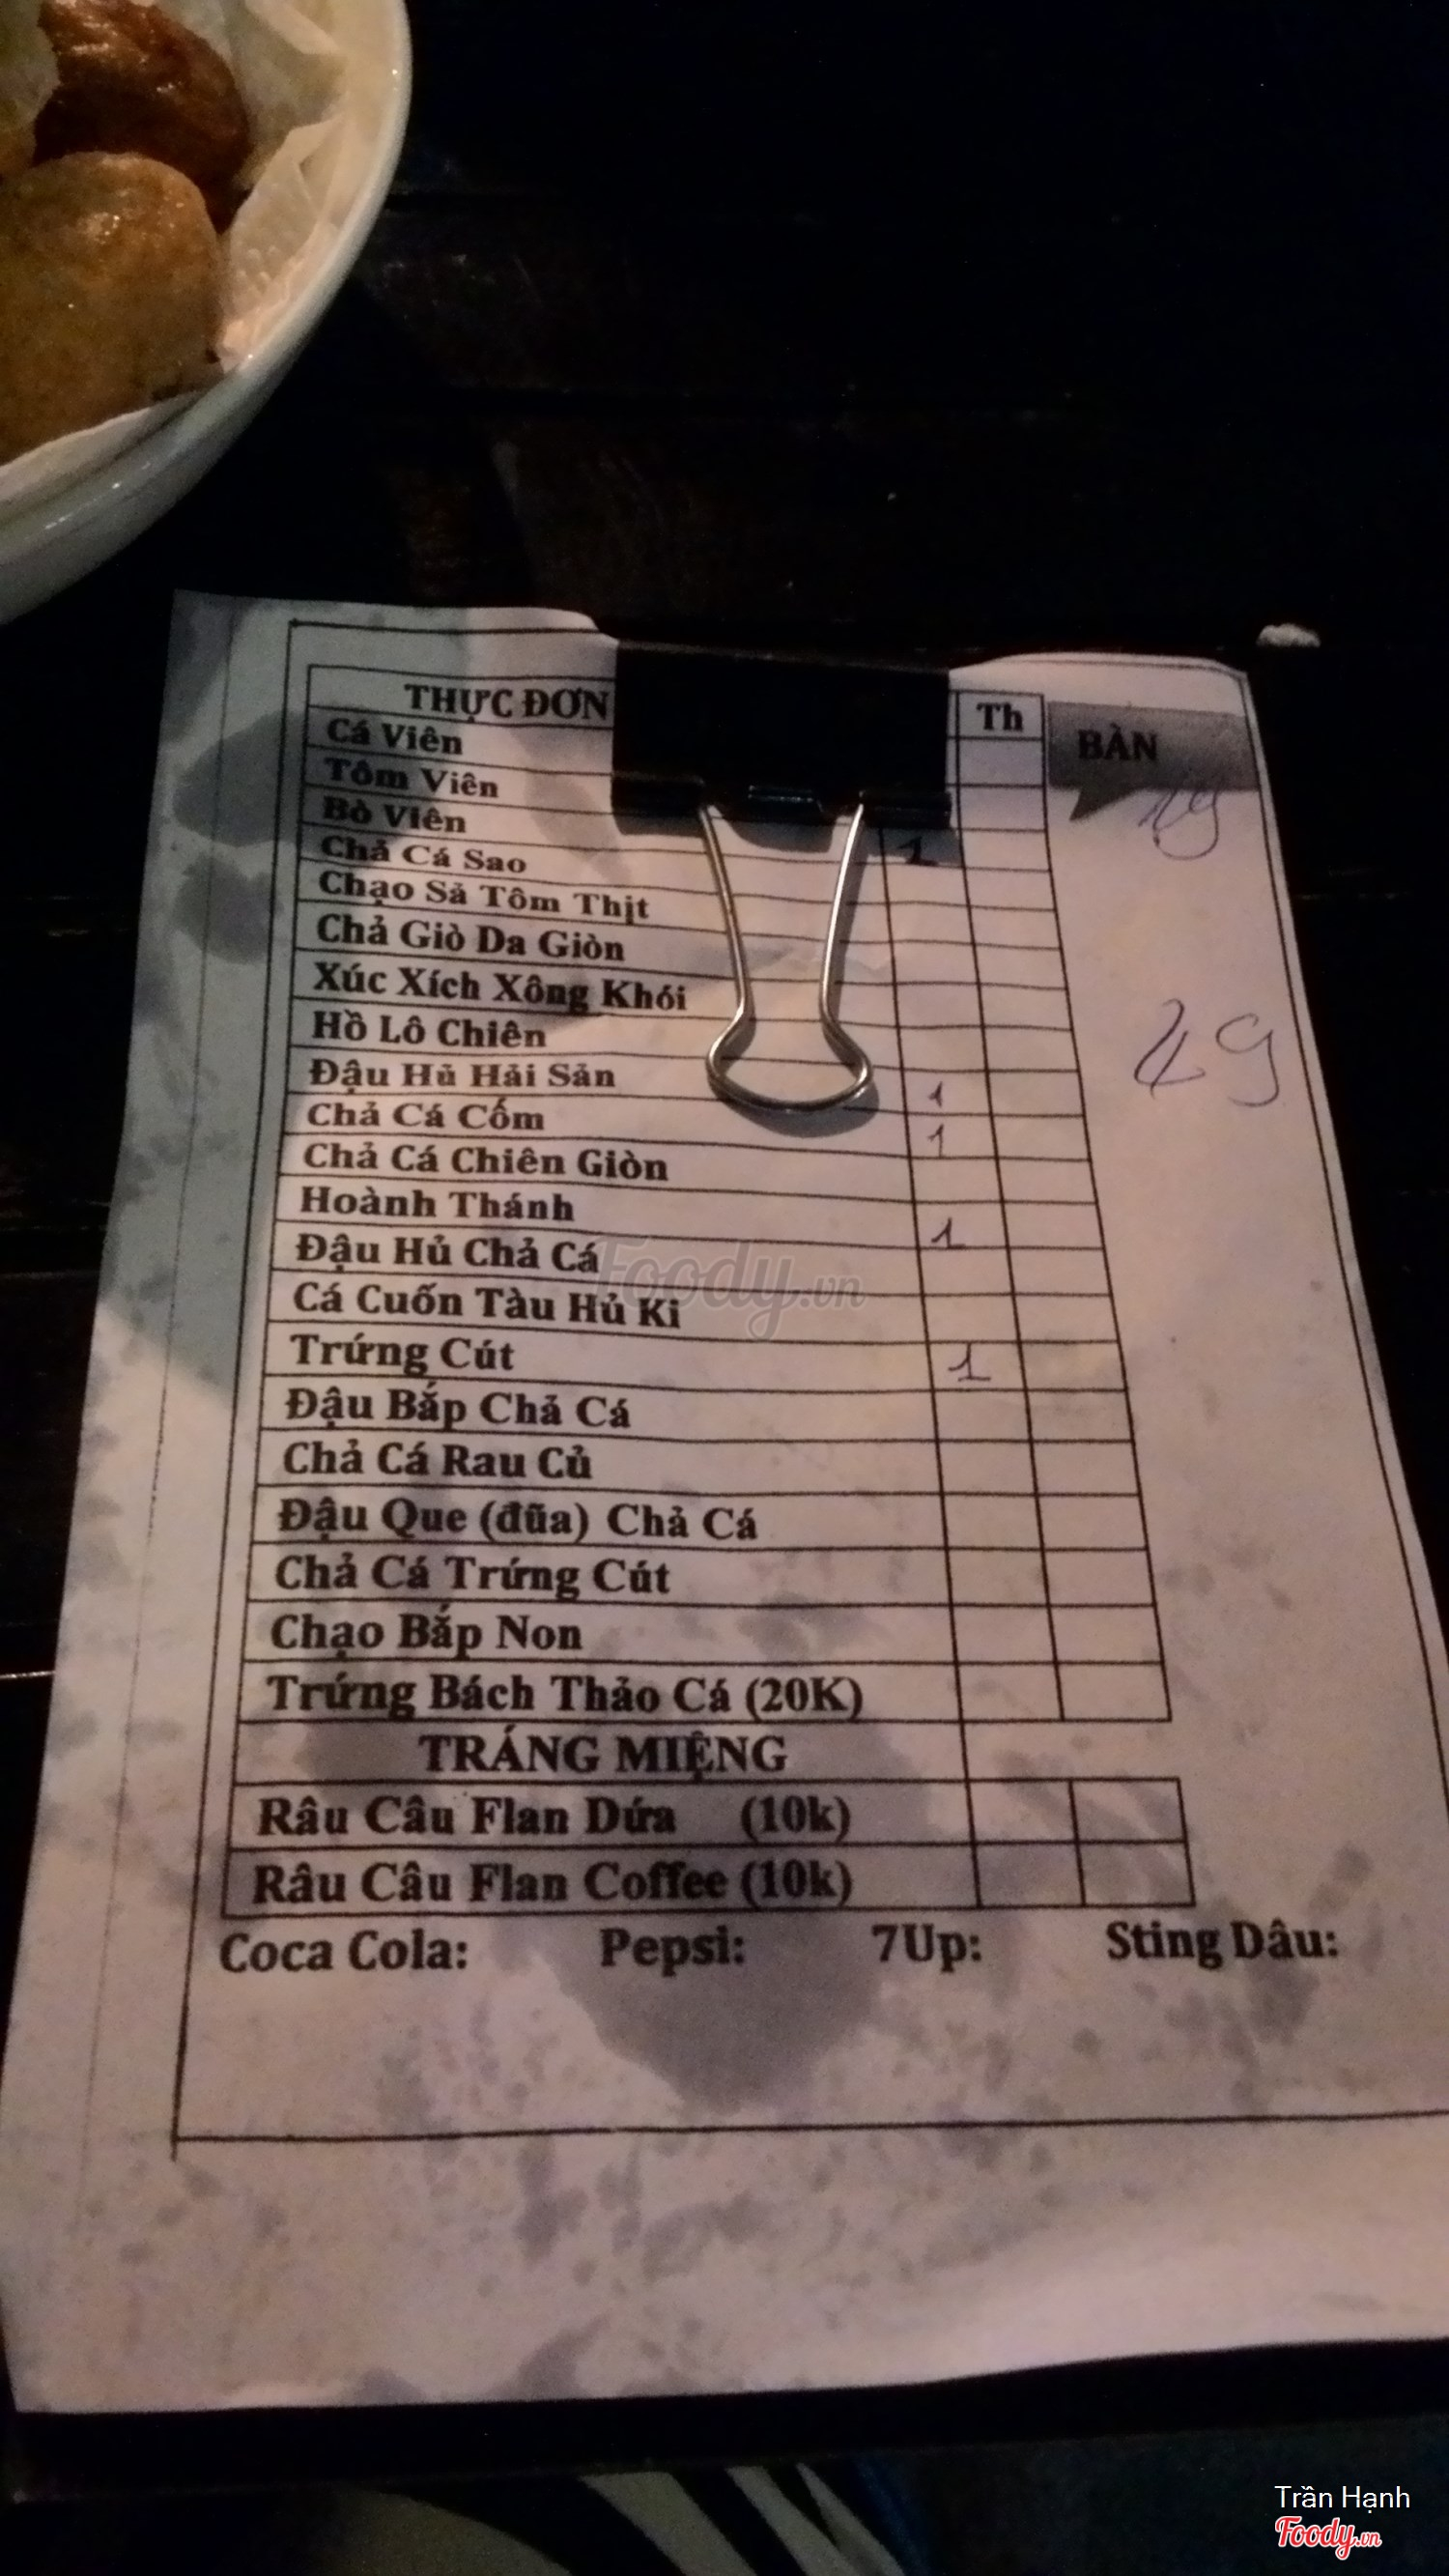 THỰC ĐƠN Th
BÀN
Cá Viên
Tôm Viên
Bò Viên 1
Chả Cá Sao
Chạo Sả Tôm Thịt
Chả Giò Da Giòn
Xúc Xích Xông Khói
Hồ Lô Chiên
Đậu Hủ Hải Sản 1
Chả Cá Cốm 1
Chả Cá Chiên Giòn
Hoành Thánh 1
Đậu Hủ Chả Cá
Cá Cuốn Tàu Hủ Ki
Trứng Cút 1
Đậu Bắp Chả Cá
Chả Cá Rau Củ
Đậu Que (đũa) Chả Cá
Chả Cá Trứng Cút
Chạo Bắp Non
Trứng Bách Thảo Cá (20K)
TRÁNG MIỆNG
Râu Câu Flan Dứa (10k)
Râu Câu Flan Coffee (10k)
Coca Cola: Pepsi: 7Up: Sting Dâu:
Foody.vn
Trần Hạnh
Foody.vn